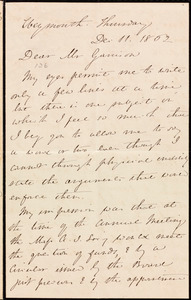 Weymouth. Thursday
Dec 11. 1862
Dear Mr Garrison
My eyes permit me to write
only a few lines at a time,
but there is one subject on
which I feel so much that
I beg you to allow me to say
a word or two even though I
cannot through physical inability
state the arguments that would
enforce them.
My impression was that at
the time of the Annual Meeting
the Mass. A. S. Soc'y would meet
the question of funds, & by a
Circular issued by the Board
just previous & by the appearance